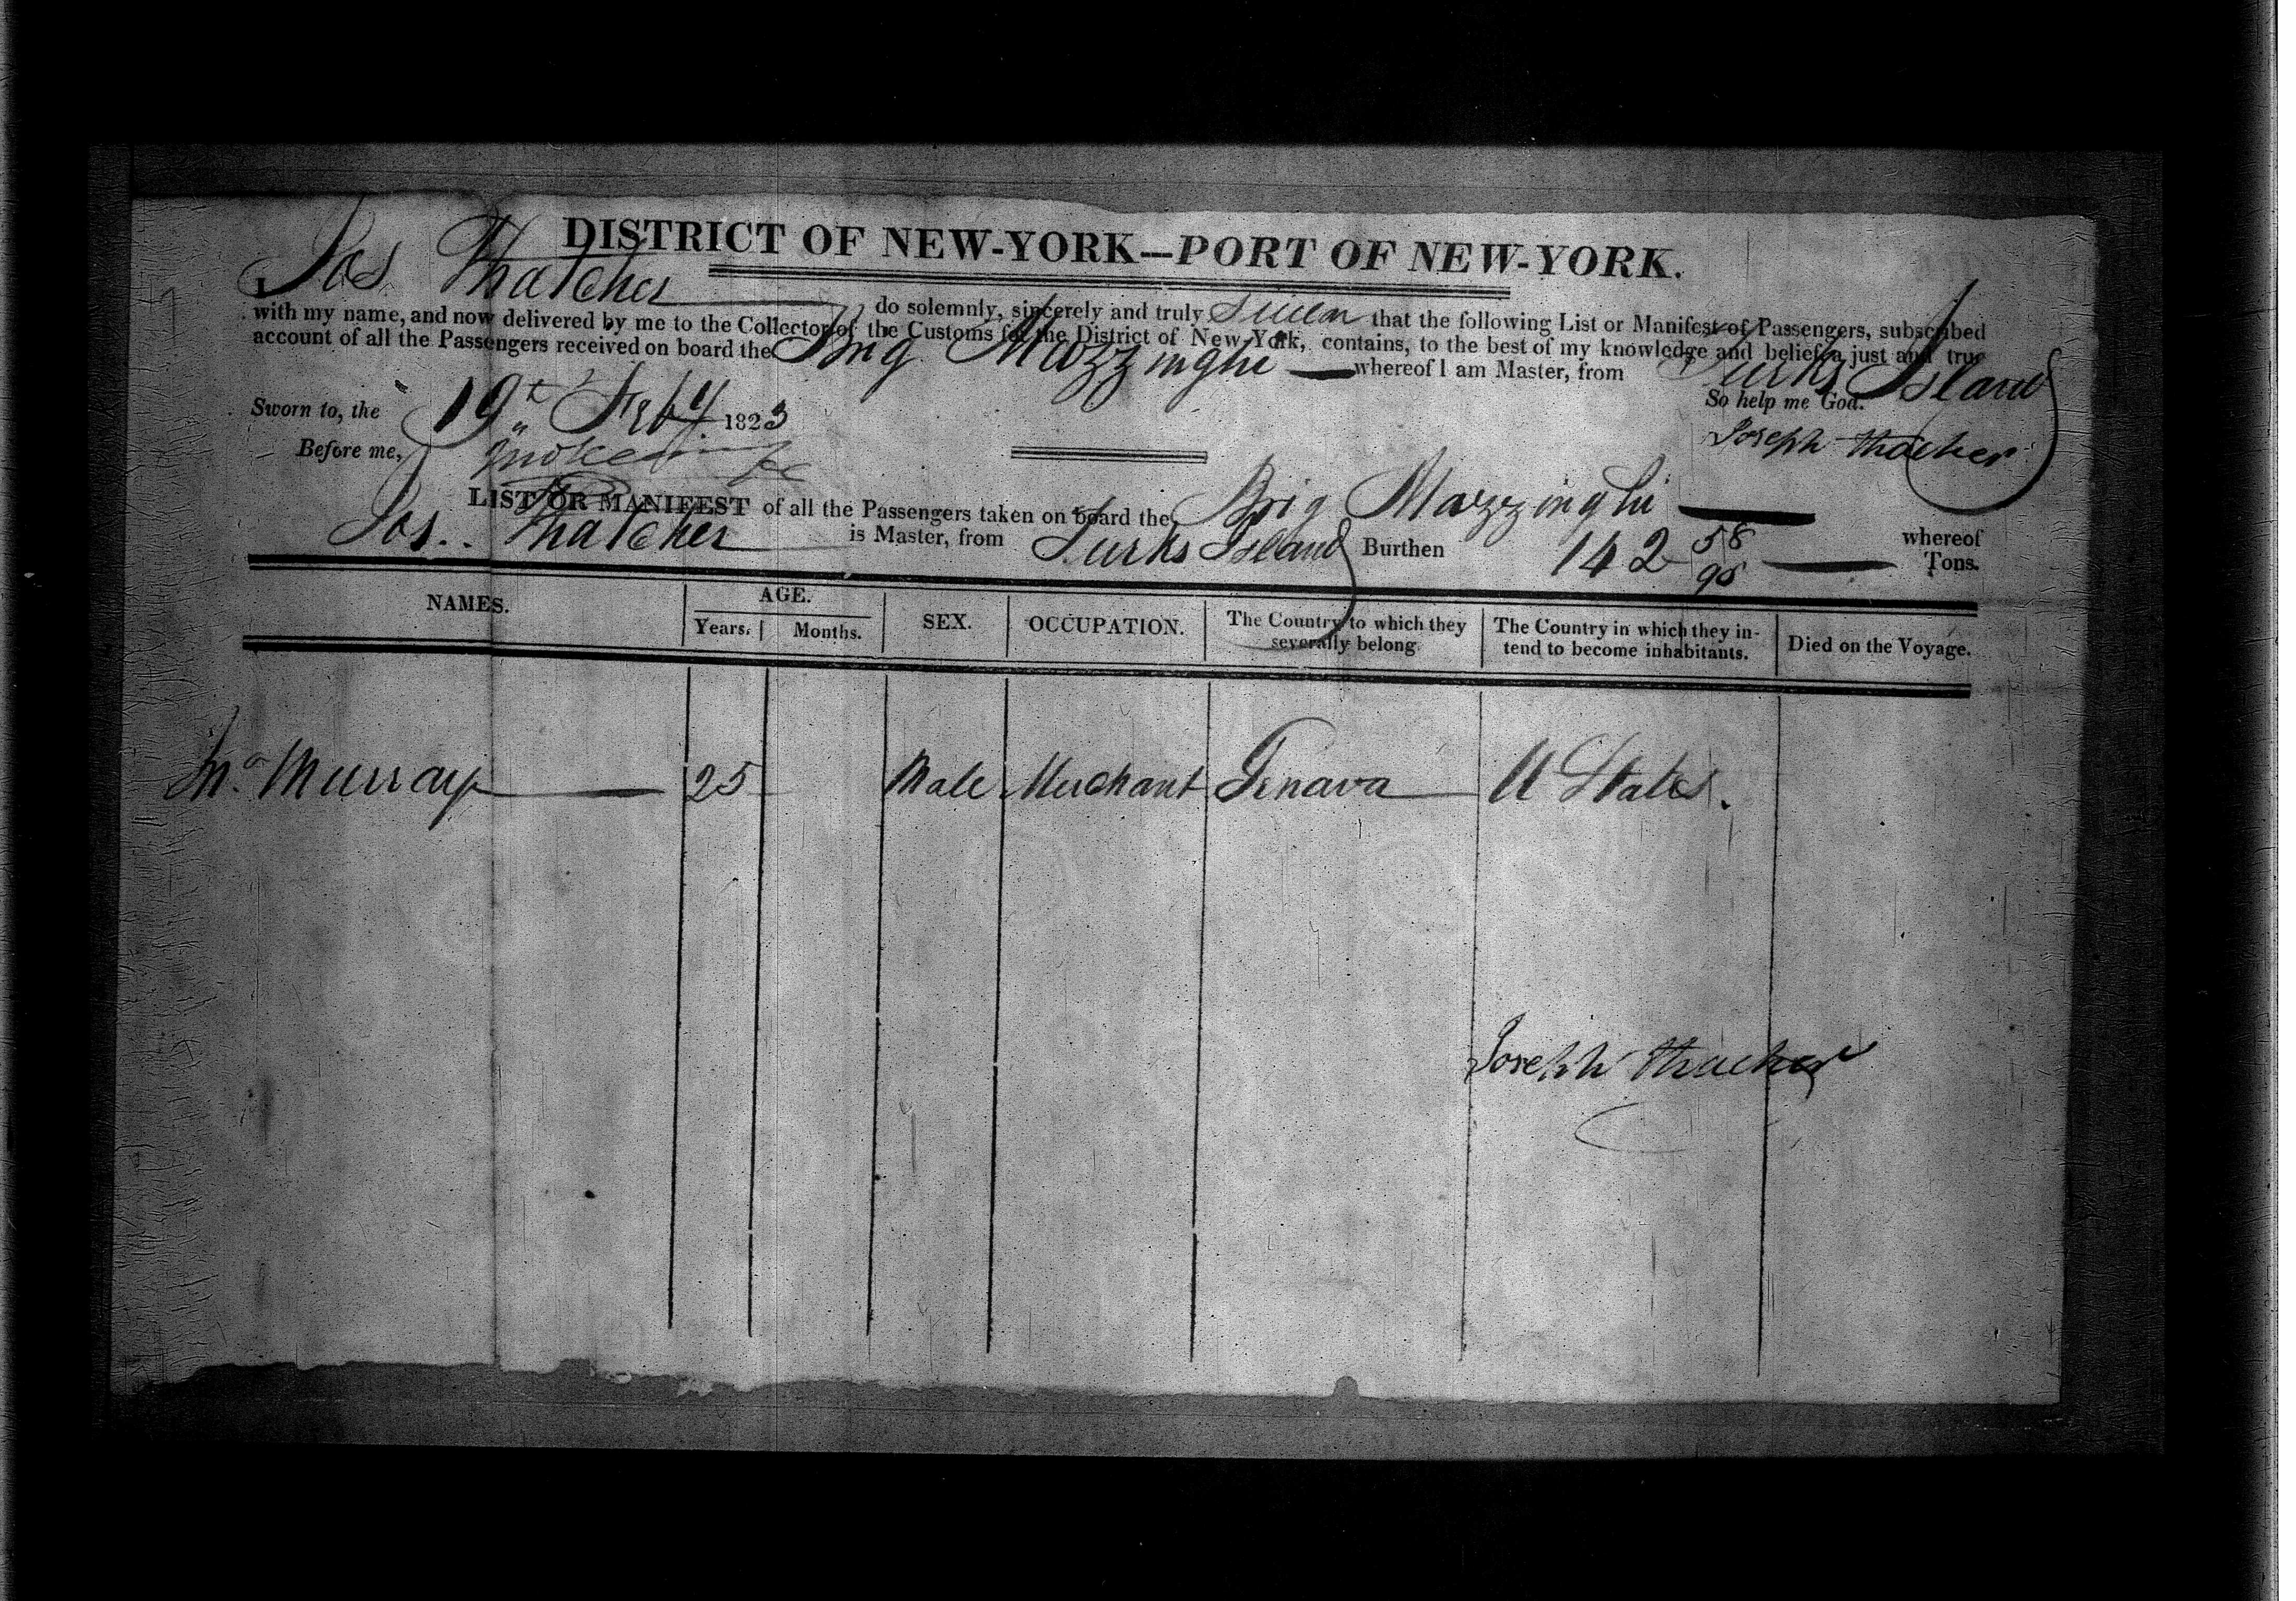 DISTRICT OF NEW-YORK—PORT OF NEW-YORK.
I, Jos. Thatcher do solemnly, sincerely and truly Swear that the following List or Manifest of Passengers, subscribed
with my name, and now delivered by me to the Collector of the Customs for the District of New-York, contains, to the best of my knowledge and belief, a just and true
account of all the Passengers received on board the Brig Mazzinghi whereof I am Master, from Turks Island
Sworn to, the 19th Feby 1823 So help me God.
Before me, Joseph Thacher
LIST OR MANIFEST of all the Passengers taken on board the Brig Mazzinghi whereof
Jos. Thatcher is Master, from Turks Island Burthen 142 58/95 Tons.
NAMES. AGE. SEX. OCCUPATION. The Country to which they severally belong. The Country in which they intend to become inhabitants. Died on the Voyage.
Years. Months.
Murray 25 Male Merchant Genava U States.
Joseph Thacher